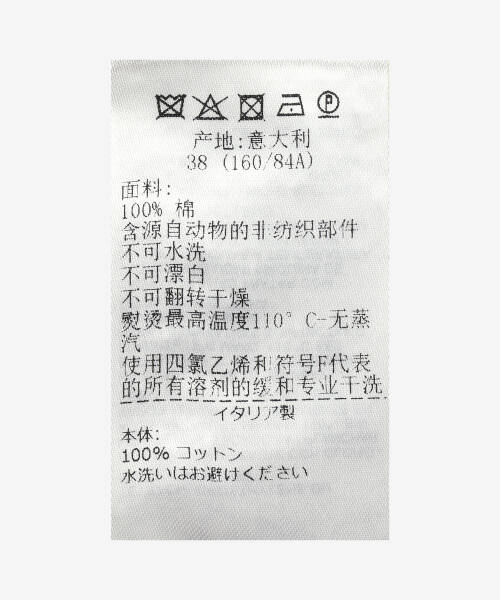 产地:意大利
38 (160/84A)
面料:
100% 棉
含源自动物的非纺织部件
不可水洗
不可漂白
不可翻转干燥
熨烫最高温度110° C-无蒸
汽
使用四氯乙烯和符号F代表
的所有溶剂的缓和专业干洗
イタリア製
本体:
100% コットン
水洗いはお避けください